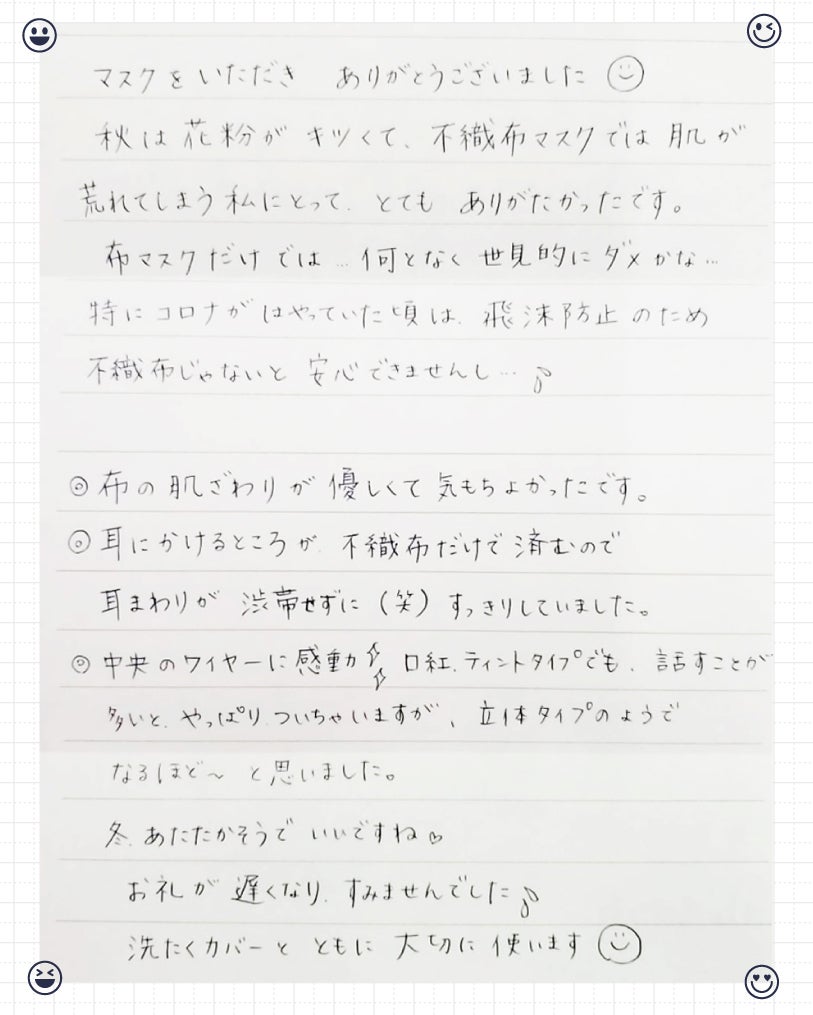 マスクをいただき ありがとうございました
秋は花粉がキツくて、不織布マスクでは肌が
荒れてしまう私にとって、とてもありがたかったです。
布マスクだけでは…何となく世見的にダメかな…
特にコロナがはやっていた頃は、飛沫防止のため
不織布じゃないと安心できませんし…♪
◎布の肌ざわりが優しくて気もちよかったです。
◎耳にかけるところが、不織布だけで済むので
耳まわりが渋帯せずに(笑)すっきりしていました。
◎中央のワイヤーに感動 口紅、ティントタイプでも、話すことが
多いと、やっぱり、ついちゃいますが、立体タイプのようで
なるほど〜と思いました。
冬、あたたかそうでいいですね♡
お礼が遅くなり、すみませんでした♪
洗たくカバーとともに大切に使います